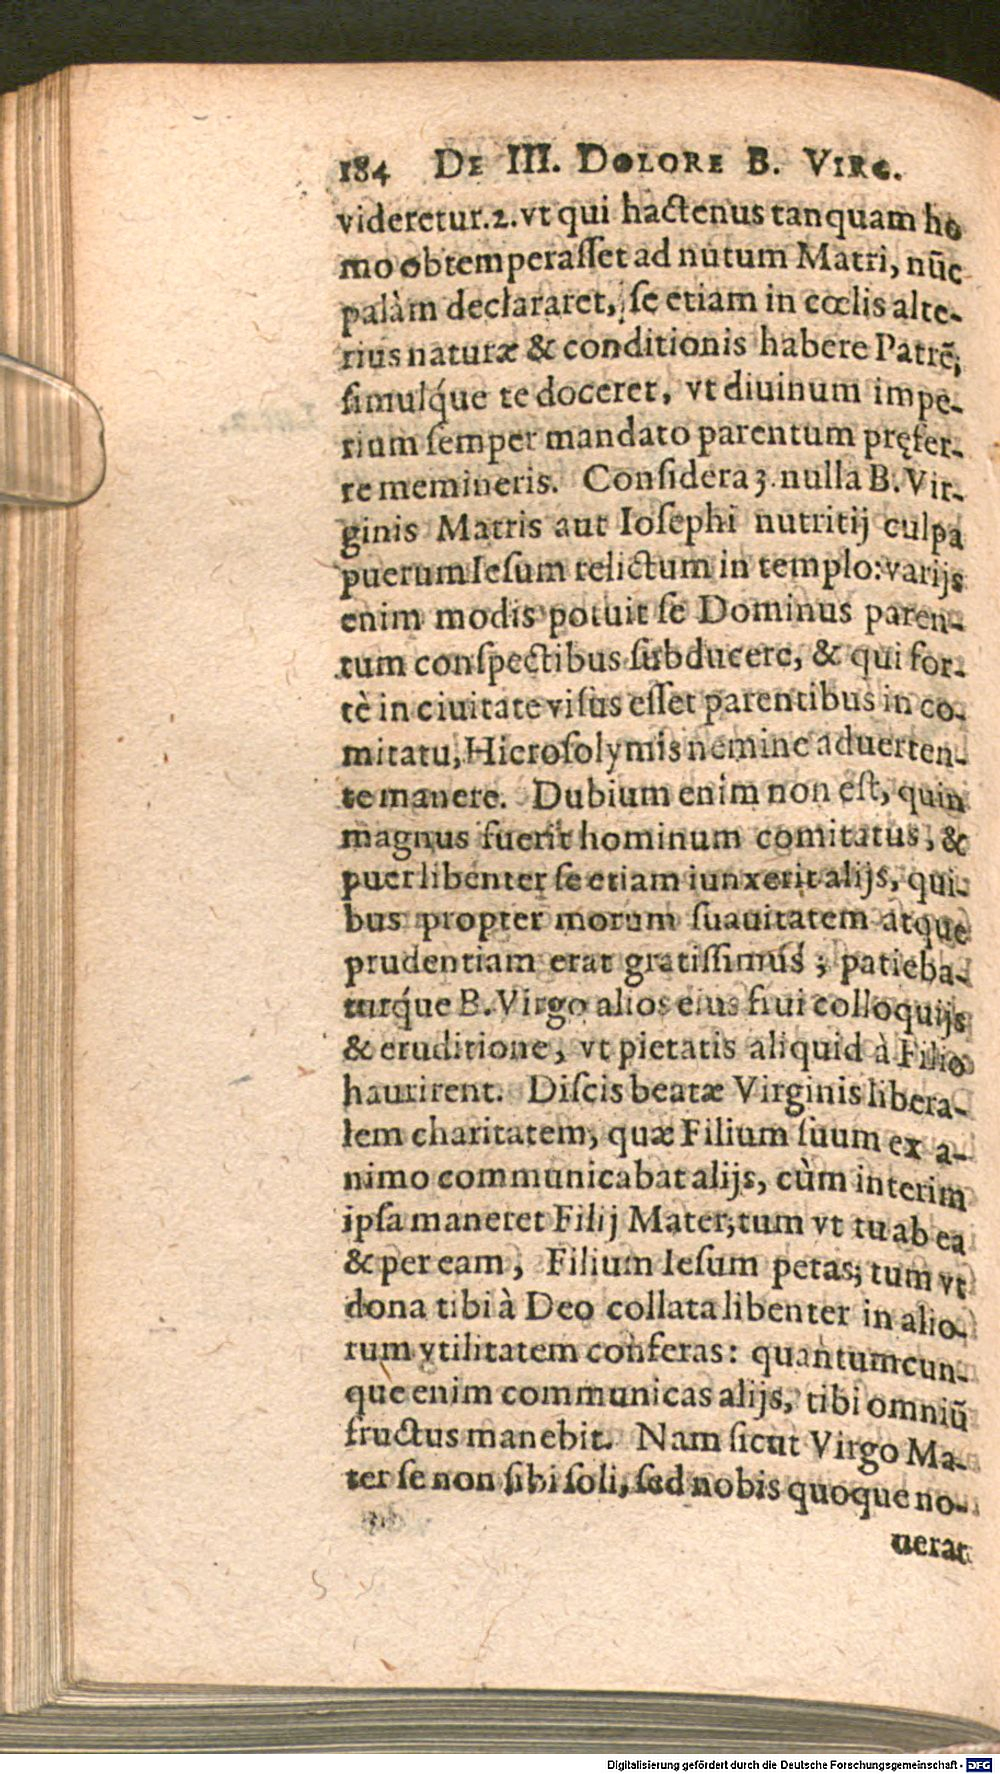 184 DE III. DOLORE B. VIRG.
videretur. 2. vt qui hactenus tanquam ho
mo obtemperasset ad nutum Matri, nūc
palàm declararet, se etiam in cœlis alte-
rius naturæ & conditionis habere Patrē;
simulq́ue te doceret, vt diuinum impe-
rium semper mandato parentum pręfer-
re memineris. Considera 3. nulla B. Vir-
ginis Matris aut Iosephi nutritij culpa
puerum Iesum relictum in templo: varijs
enim modis potuit se Dominus paren-
tum conspectibus subducere, & qui for-
tè in ciuitate visus esset parentibus in co-
mitatu, Hierosolymis nemine aduerten-
te manere. Dubium enim non est, quin
magnus fuerit hominum comitatus, &
puer libenter se etiam iunxerit alijs, qui-
bus propter morum suauitatem atque
prudentiam erat gratissimus; patieba-
turq́ue B. Virgo alios eius frui colloquijs
& eruditione, vt pietatis aliquid à Filio
haurirent. Discis beatæ Virginis libera-
lem charitatem, quæ Filium suum ex a-
nimo communicabat alijs, cùm interim
ipsa maneret Filij Mater; tum vt tu ab ea
& per eam, Filium Iesum petas; tum vt
dona tibi à Deo collata libenter in alio-
rum vtilitatem conferas: quantumcun-
que enim communicas alijs, tibi omniū
fructus manebit. Nam sicut Virgo Ma-
ter se non sibi soli, sed nobis quoque no-
uerat
Digitalisierung gefördert durch die Deutsche Forschungsgemeinschaft - DFG